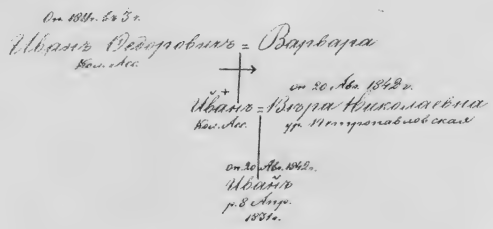 Оп. 1811. въ 3 г.
Иванъ Ѳедоровичъ = Варвара
Кол. Асс.
оп 20 Авг. 1842 г.
Иванъ = Вѣра Николаевна
Кол. Асс.
ур. Петропавловская
оп. 20 Авг. 1842 г.
Иванъ
р. 8 Апр.
1831 г.